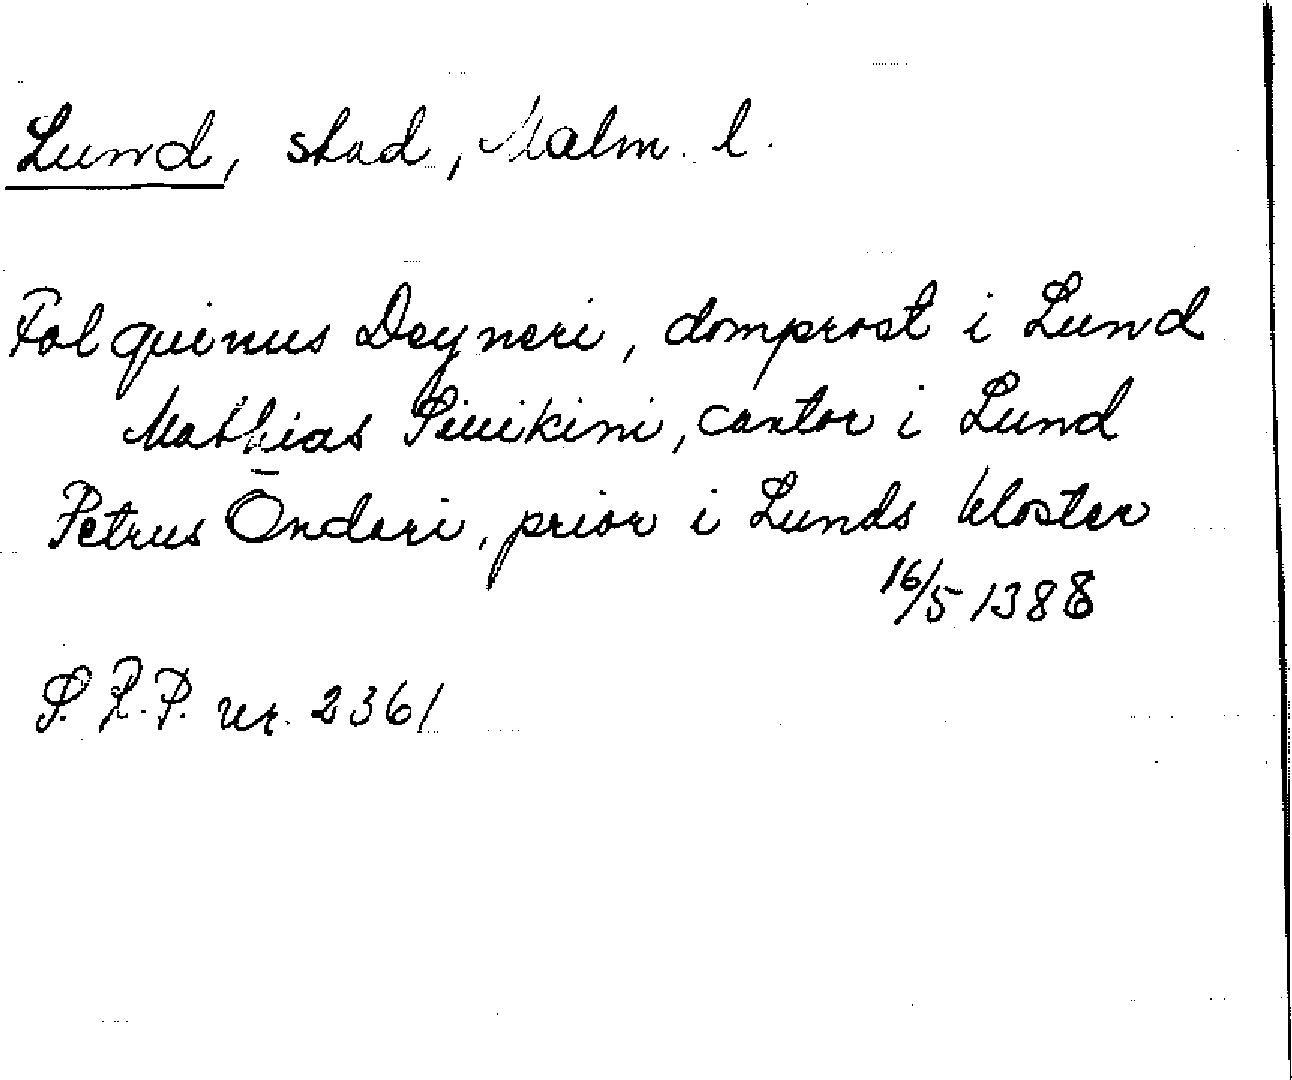 Lund, stad, Malm. l.
Folquinus Deyneri, domprost i Lund
Mathias Pinikini, cantor i Lund
Petrus Ōnderi, prior i Lunds kloster
16/5 1388
S.R.P. nr. 2361